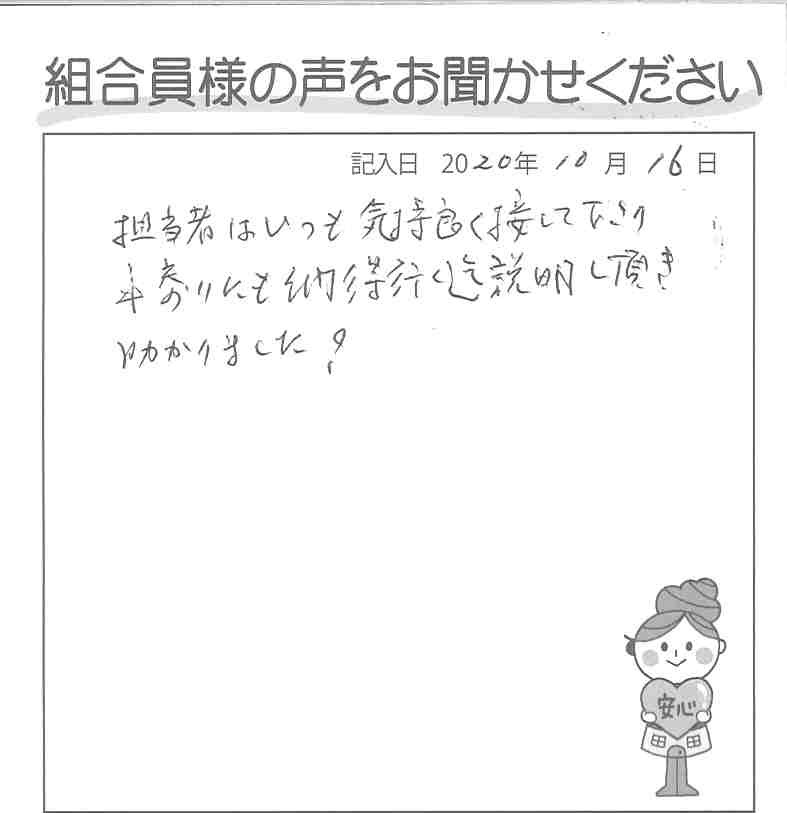 組合員様の声をお聞かせください
記入日 2020年 10月 16日
担当者はいつも気持良く接して下さり
年寄りにも納得行く迄説明し頂き
助かりました!
安心